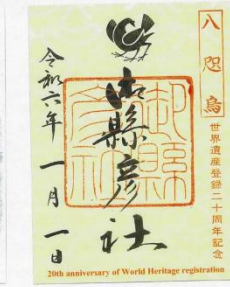 八咫烏
世界遺産登録二十周年記念
御縣彦社
令和六年 一月 一日
御縣彦社
20th anniversary of World Heritage registration